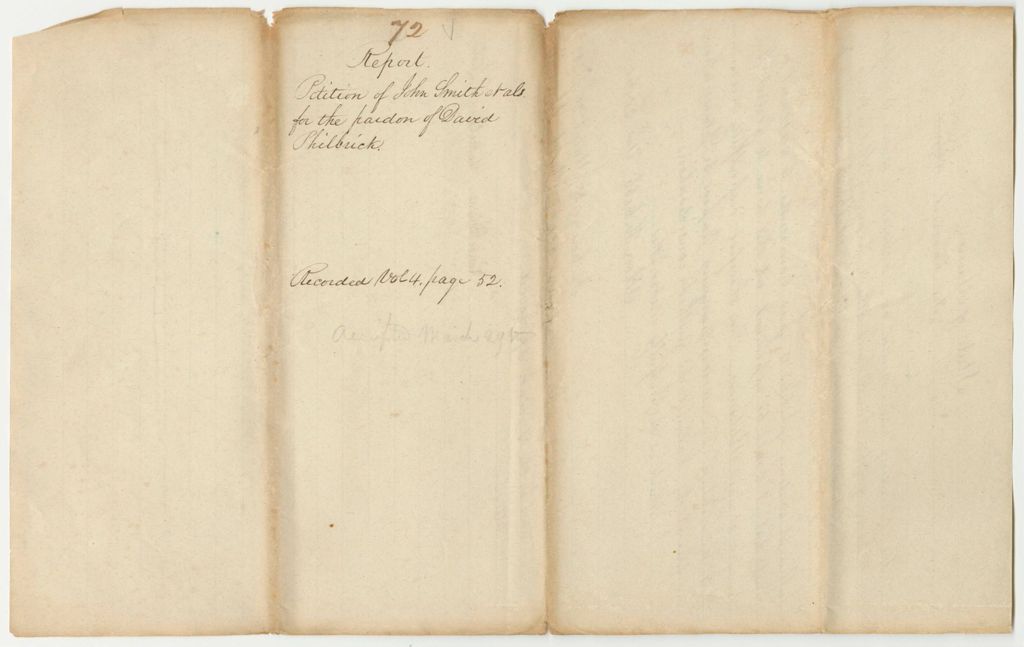 72
Report.
Petition of John Smith et als
for the pardon of David
Philbrick.
Recorded Vol 4. page 52.
Accepted March 29th